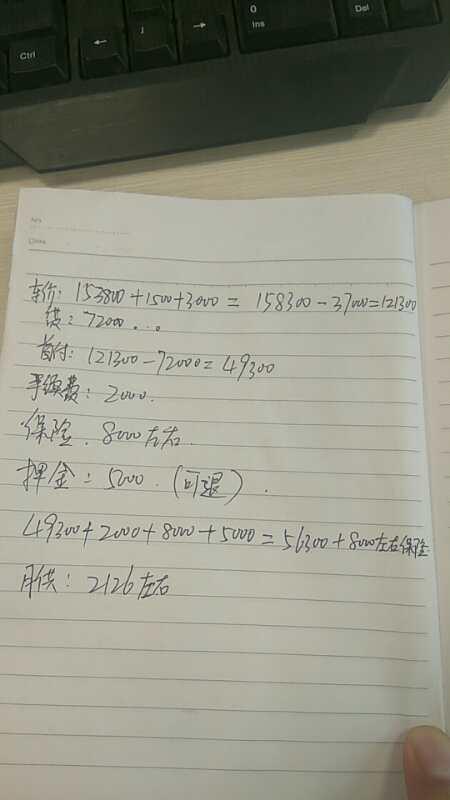 Ctrl
←
↓
→
0
Ins
Del
No
Date
车价: 153800+1500+3000 = 158300-37000=121300
贷: 72000...
首付: 121300-72000=49300
手续费: 2000.
保险. 8000左右.
押金: 5000. (可退).
49300+2000+8000+5000=56300+8000左右保险
月供: 2126左右